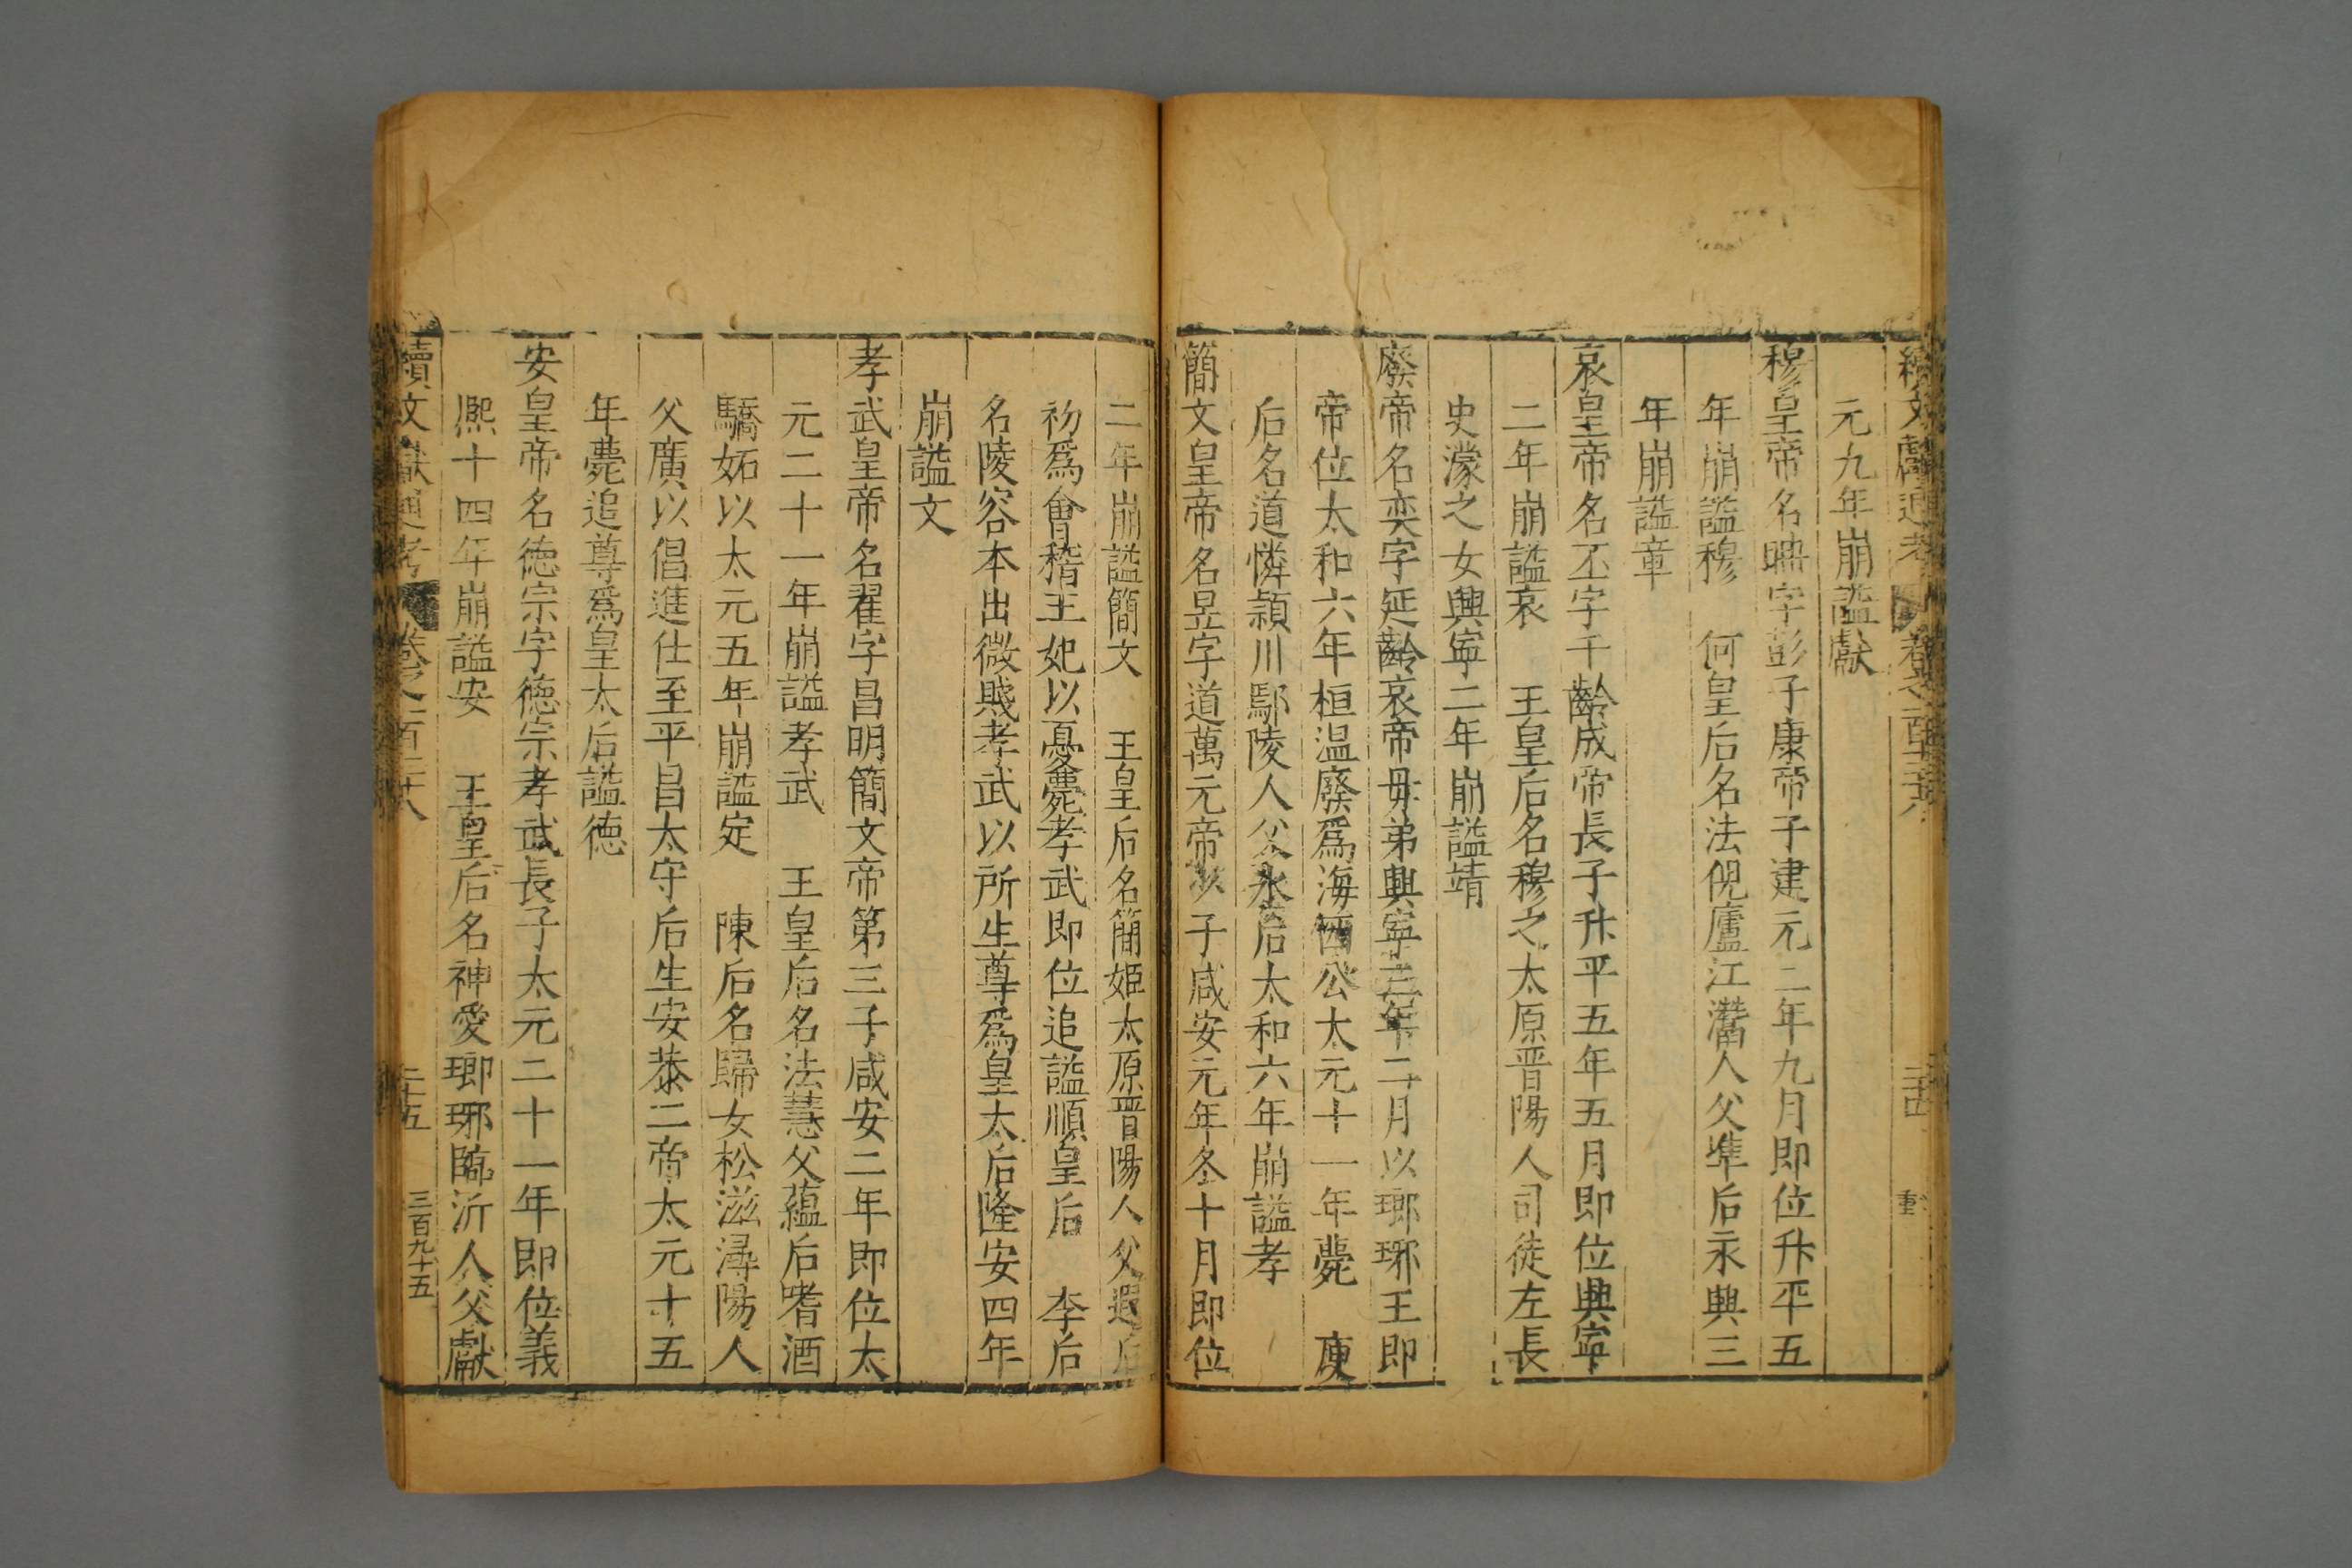 續文獻通考 卷之一百三十八 二十四
元九年崩謚獻
穆皇帝名聃字彭子康帝子建元二年九月即位升平五
年崩謚穆 何皇后名法倪廬江灊人父準后永興三
年崩謚章
哀皇帝名丕字千齡成帝長子升平五年五月即位興寧
二年崩謚哀 王皇后名穆之太原晉陽人司徒左長
史濛之女興寧二年崩謚靖
廢帝名奕字延齡哀帝母弟興寧三年二月以瑯琊王即
帝位太和六年桓温廢爲海西公太元十一年薨 庾
后名道憐潁川鄢陵人父氷后太和六年崩謚孝
簡文皇帝名昱字道萬元帝次子咸安元年冬十月即位
二年崩謚簡文 王皇后名簡姬太原晉陽人父遐后
初爲會稽王妃以憂薨孝武即位追謚順皇后 李后
名陵容本出微賤孝武以所生尊爲皇太后隆安四年
崩謚文
孝武皇帝名翟字昌明簡文帝第三子咸安二年即位太
元二十一年崩謚孝武 王皇后名法慧父蘊后嗜酒
驕妬以太元五年崩謚定 陳后名歸女松滋潯陽人
父廣以倡進仕至平昌太守后生安恭二帝太元十五
年薨追尊爲皇太后謚德
安皇帝名德宗字德宗孝武長子太元二十一年即位義
熙十四年崩謚安 王皇后名神愛瑯琊臨沂人父獻
續文獻通考 卷之一百三十八 二十五 三百九十五